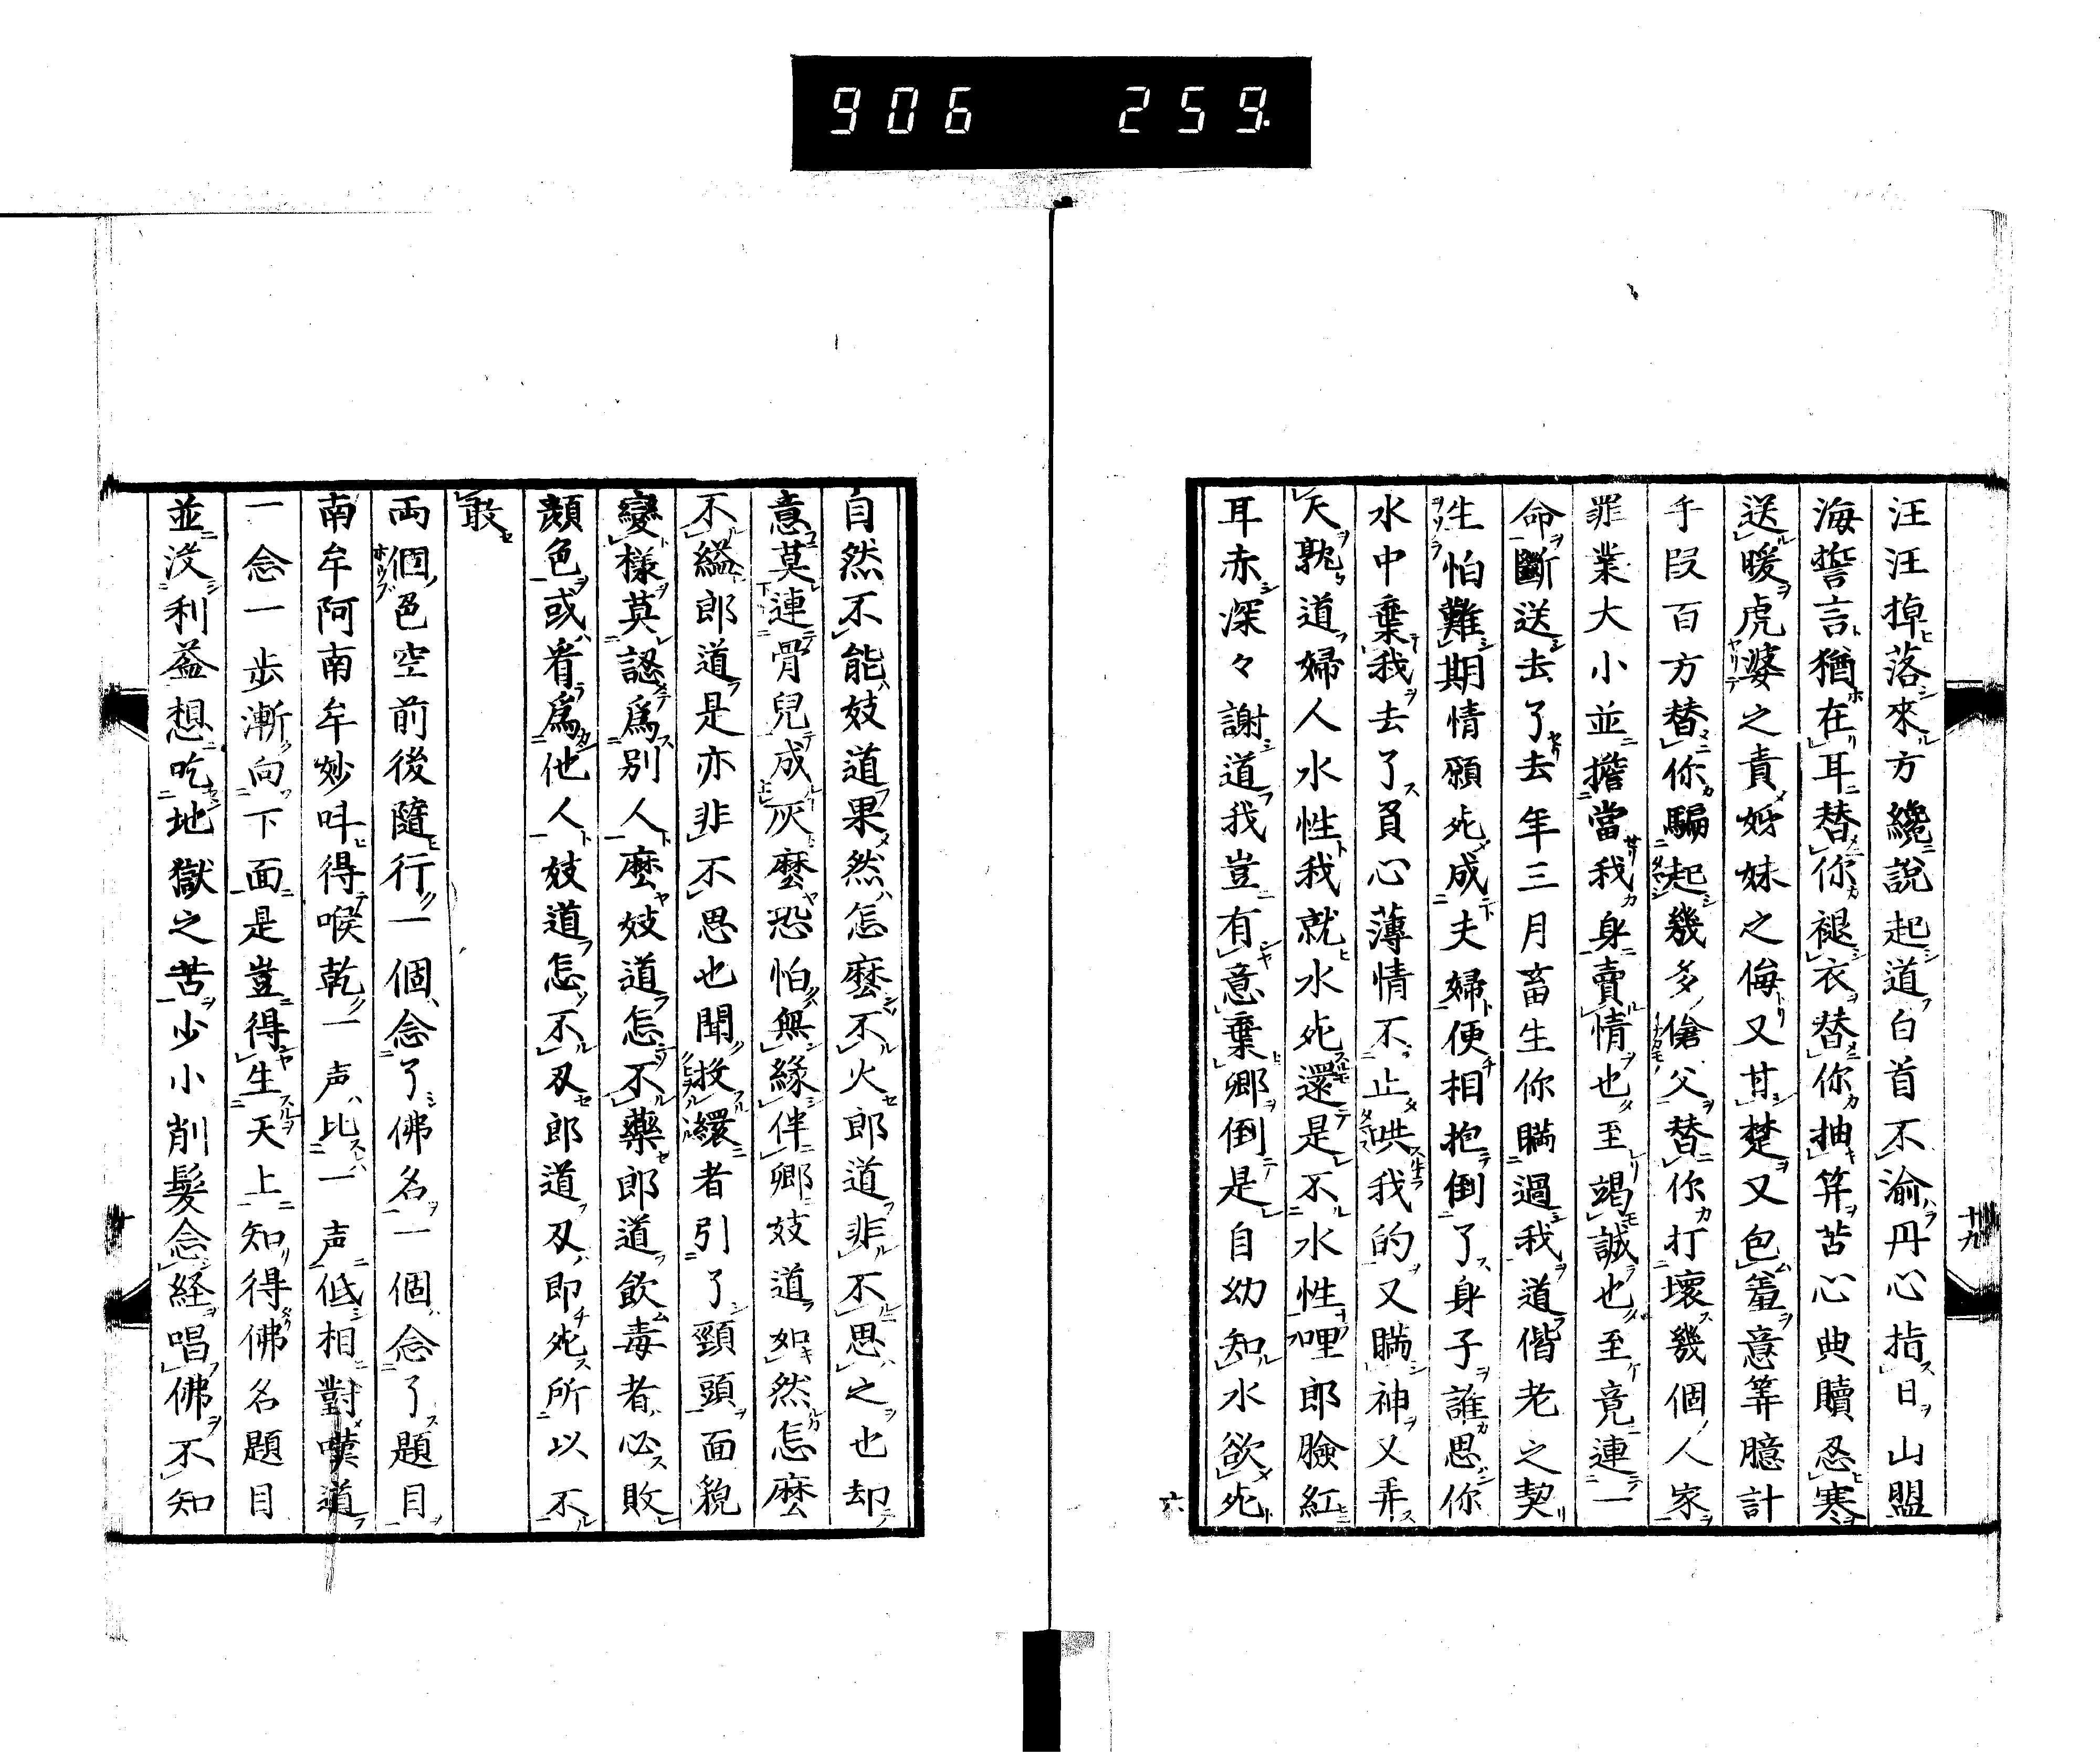 906 259.
十九
汪汪掉落來方纔說起道白首不渝丹心指日山盟
海誓言猶在耳替你褪衣替你抽筭苦心典贖忍寒
送暖虎婆之責姊妹之侮又甘楚又包羞意筭臆計
手段百方替你騙起幾多傖父替你打壞幾個人家
罪業大小並擔當我身賣情也至竭誠也至竟連一
命斷送去了去年三月畜生你瞞過我道偕老之契
生怕難期情願死成夫婦便相抱倒了身子誰思你
水中棄我去了負心薄情不止哄我的又瞞神又弄
天孰道婦人水性我就水死還是不水性哩郎臉紅
耳赤深々謝道我豈有意棄卿倒是自幼知水欲死
自然不能妓道果然怎麼不火郎道非不思之也却
意莫連骨兒成灰麼恐怕無緣伴卿妓道如然怎麼
不縊郎道是亦非不思也聞救繯者引了頸頭面貌
變樣莫認為別人麼妓道怎不藥郎道飲毒者必敗
顏色或看為他人妓道怎不刃郎道刃即死所以不
敢
両個色空前後隨行一個念了佛名一個念了題目
南牟阿南牟妙呌得喉乾一声比一声低相對嘆道
一念一步漸向下面是豈得生天上知得佛名題目
並没利益想吃地獄之苦少小削髮念経唱佛不知